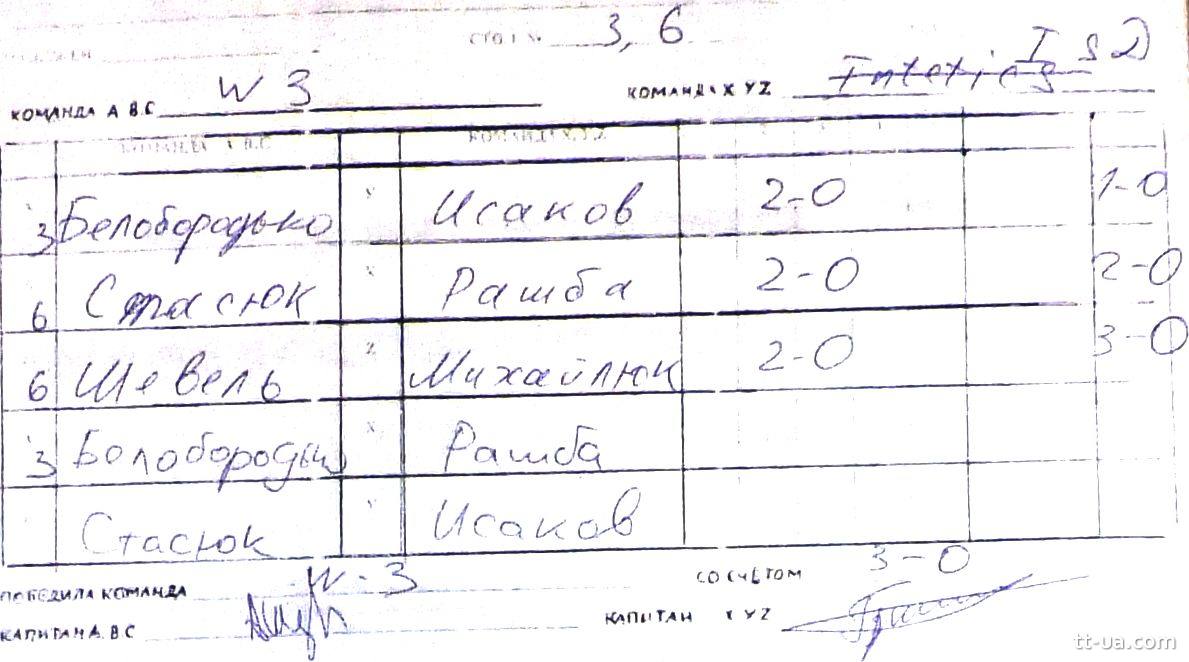 СТОЛ № 3, 6
КОМАНДА А В.С W 3 КОМАНДА X YZ I s 2)
КОМАНДА А В.С КОМАНДА X Y Z
3 Белобородько х Исаков 2-0 1-0
6 Стасюк х Рашба 2-0 2-0
6 Шевель Михайлюк 2-0 3-0
3 х Рашба
Стасюк Исаков
ПОБЕДИЛА КОМАНДА W-3 СО СЧЕТОМ 3-0
КАПИТАН А. В С КАПИТАН X YZ
tt-ua.com